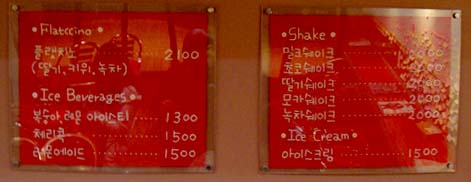 • Flatccino •
플랫치노 2100
(딸기, 키위, 녹차)
• Ice Beverages •
복숭아, 레몬 아이스티 ······ 1300
체리콕 ······ 1500
레몬에이드 ······ 1500
• Shake •
밀크쉐이크
초코쉐이크
딸기쉐이크
모카쉐이크 ······ 2000
녹차쉐이크 ······ 2000
• Ice Cream •
아이스크림 ······ 1500